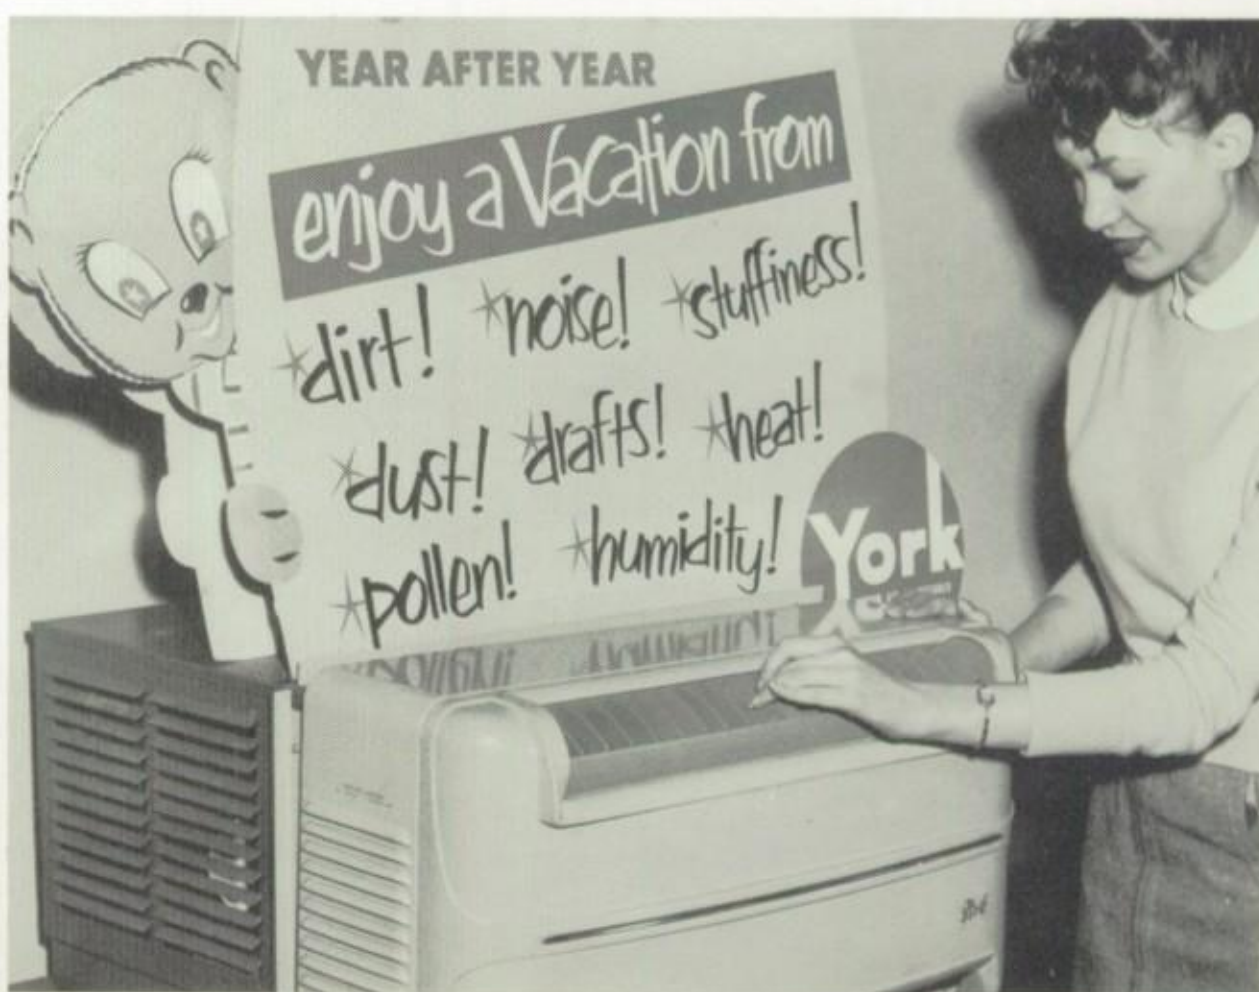 YEAR AFTER YEAR
enjoy a Vacation from
*dirt! *noise! *stuffiness!
*dust! *drafts! *heat!
*pollen! *humidity!
York